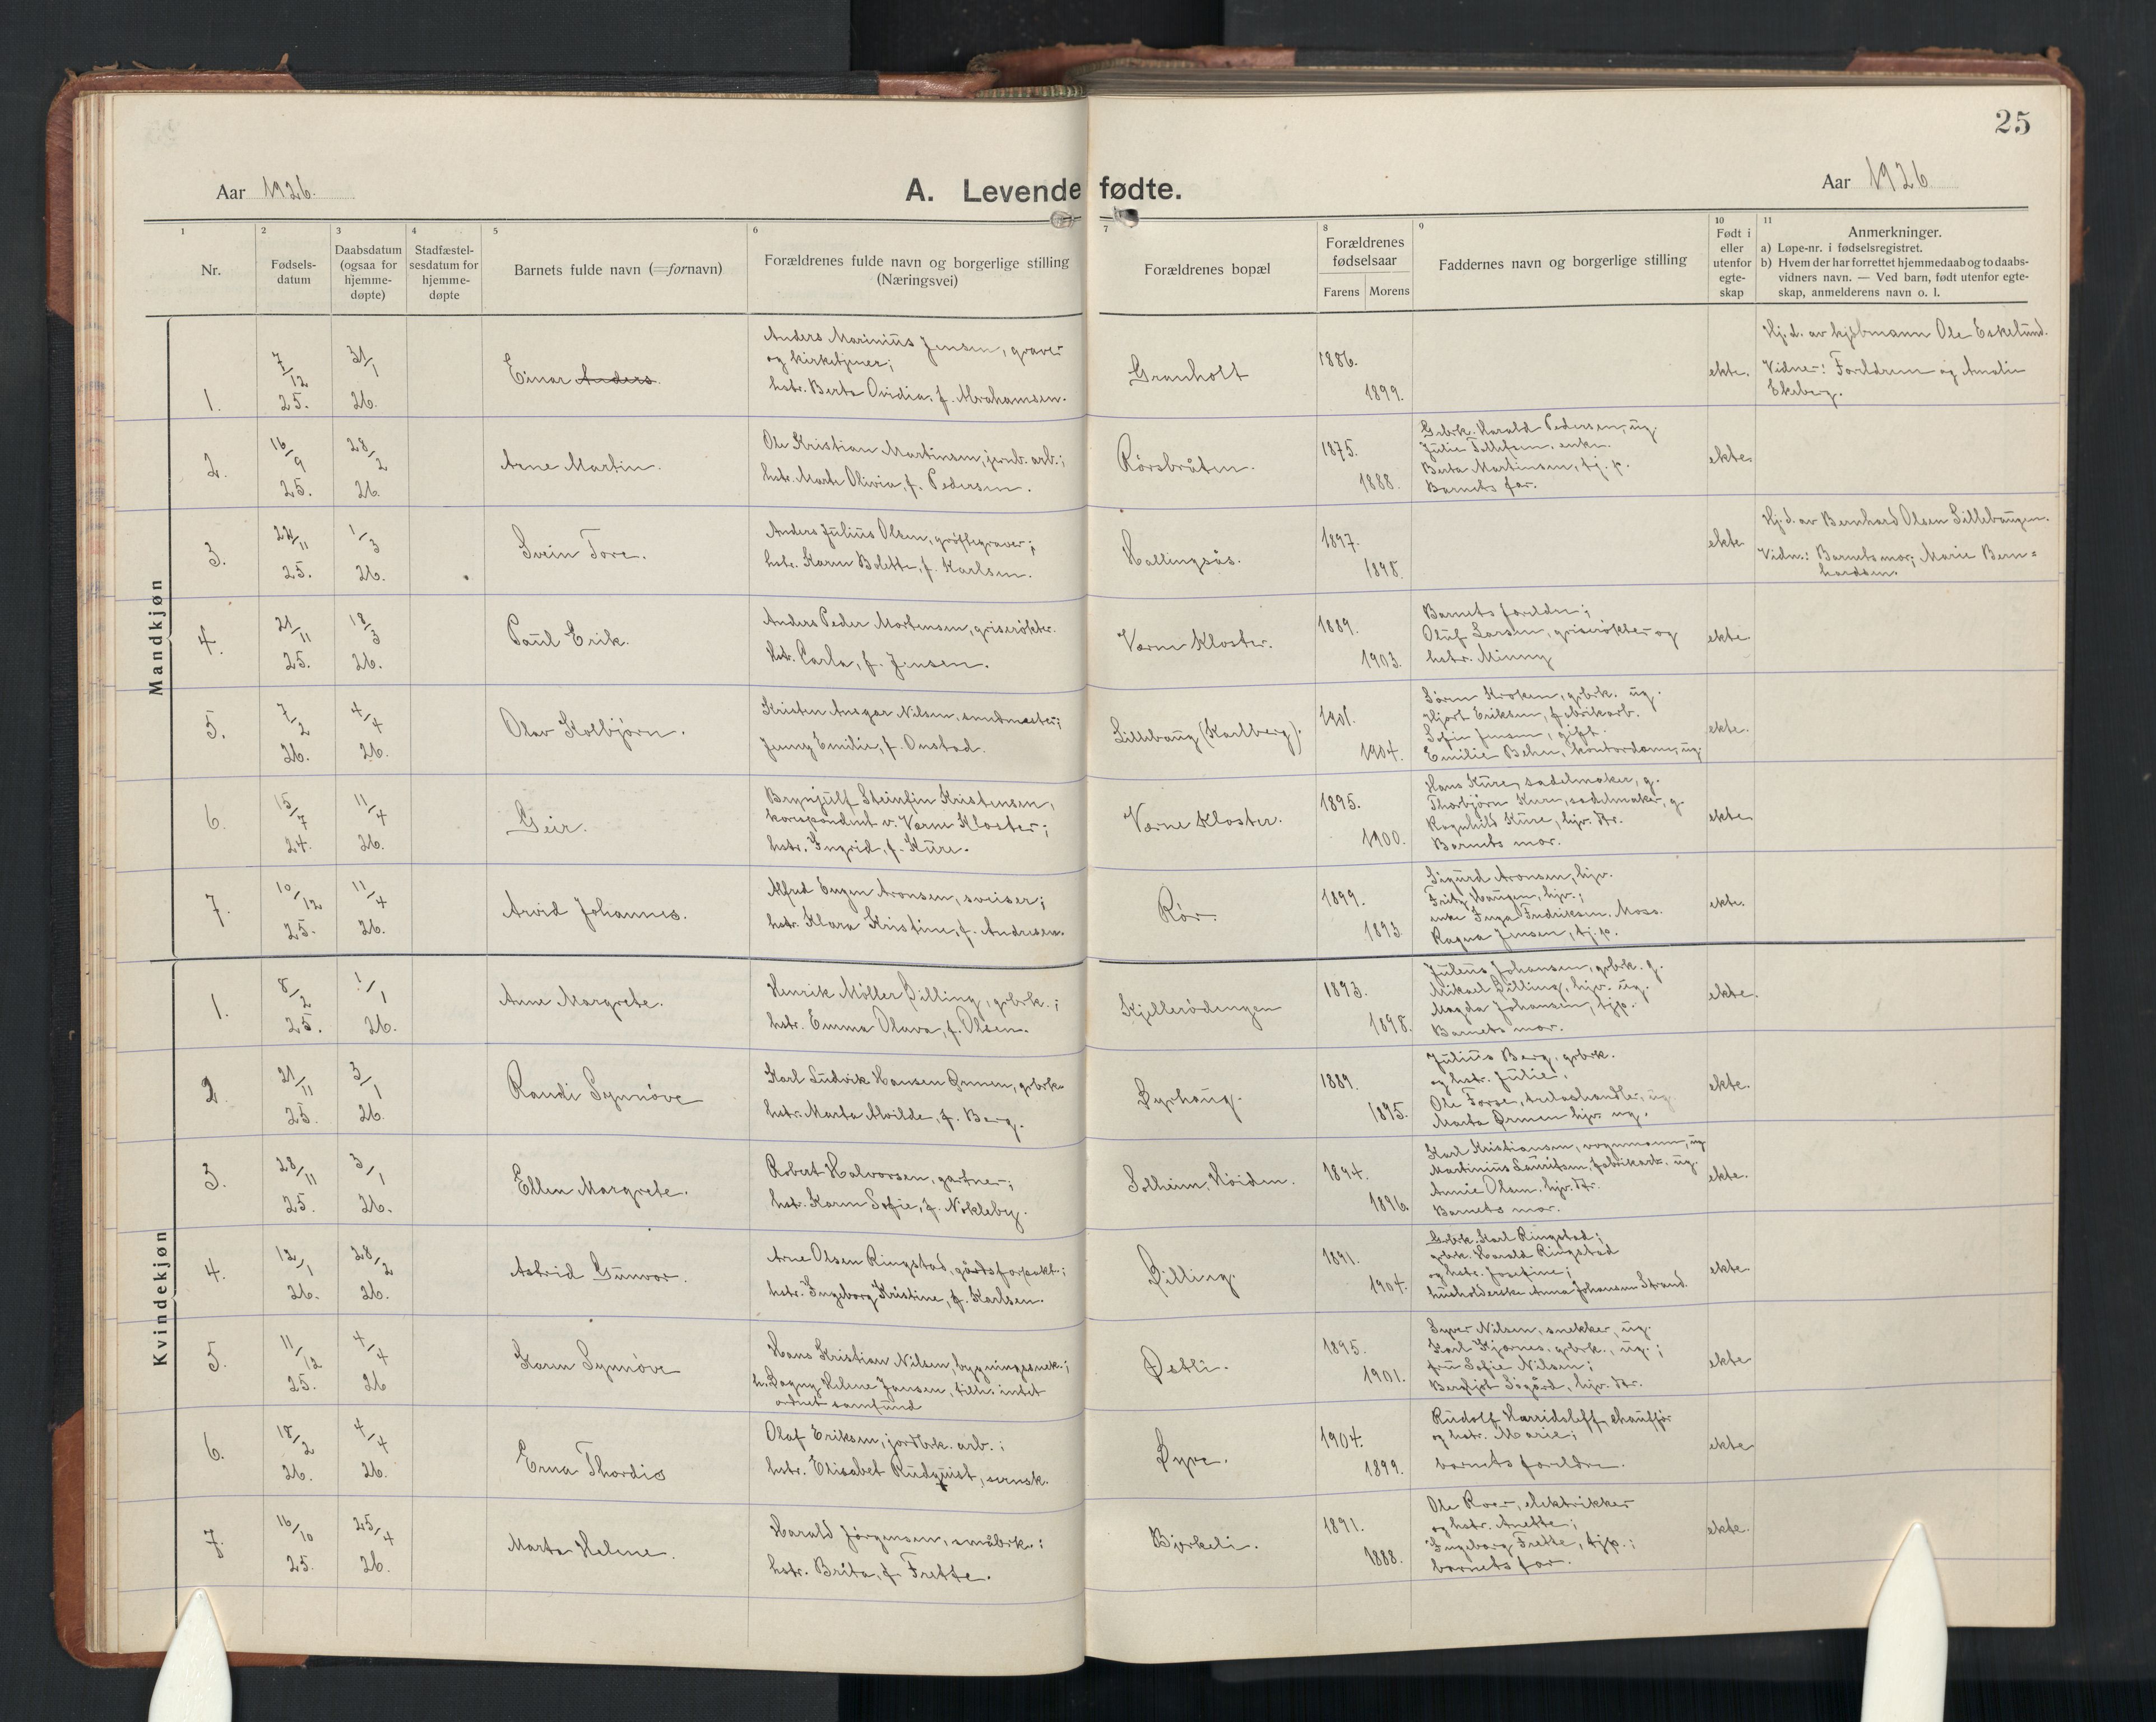 25
Aar 1926.
A. Levende fødte.
Aar 1926
1 2 3 4 5 6 7 8 9 10 11
Nr.
Fødsels-
datum
Daabsdatum
(ogsaa for
hjemme-
døpte)
Stadfæstel-
sesdatum for
hjemme-
døpte
Barnets fulde navn (= fornavn)
Forældrenes fulde navn og borgerlige stilling
(Næringsvei)
Forældrenes bopæl
Forældrenes
fødselsaar
Farens Morens
Faddernes navn og borgerlige stilling
Født i
eller
utenfor
egte-
skap
Anmerkninger.
a) Løpe-nr. i fødselsregistret.
b) Hvem der har forrettet hjemmedaab og to daabs-
vidners navn. — Ved barn, født utenfor egte-
skap, anmelderens navn o. l.
Mandkjøn
1.
7/12
25.
31/1
26.
Einar Anders.
Anders Marinius Jensen, graver
og kirketjener;
hstr. Berta Ovidia, f. Abrahamsen.
Granholt
1886.
1899.
ekte.
Hj.d. av kjøbmann Ole Eskelund.
Vidner: Foreldrene og Amalie
Ekeberg.
2.
16/9
25.
28/2
26.
Arne Martin.
Ole Kristian Martinsen, jernb. arb.;
hstr. Marte Olivia, f. Pedersen.
Rørsbråten.
1875.
1888.
Grbrk. Harald Pedersen, ug.
Julie Tollefsen, enke.
Berta Martinsen, tj.p.
Barnets far.
ekte.
3.
24/11
25.
1/3
26.
Svein Tore.
Anders Julius Olsen, grøftegraver;
hstr. Karen Bolette, f. Karlsen.
Hallingsås.
1897.
1898.
ekte
Hj.d. av Bernhard Olsen Lillebaugen.
Vidn.: Barnets mor; Marie Bern=
hardsen.
4.
21/11
25.
18/3
26.
Paul Erik.
Anders Peder Mortensen, griserøkter.
hstr. Carla, f. Jensen.
Værne Kloster.
1889.
1903.
Barnets foreldre;
Oluf Larsen, griserøkter og
hstr. Minny
ekte
5.
7/2
26.
4/4
26.
Olav Kolbjørn.
Kristen Ansgar Nilsen, smedmester;
Jenny Emilie, f. Onstad.
Lillebaug (Karlberg).
1901.
1904.
Søren Kroken, grbrk. ug.
Hjort Eriksen, fabrikarb.
Sofie Jensen, gift.
Emilie Behn, kontordame, ug.
ekte.
6.
15/7
24.
11/4
26.
Geir.
Brynjulf Steinfin Kristensen,
korrespondent v. Værne Kloster;
hstr. Ingrid, f. Kure.
Værne Kloster.
1895.
1900.
Hans Kure, sadelmaker, g.
Thorbjørn Kure, sadelmaker, g.
Ragnhild Kure, hjv. dtr.
Barnets mor.
ekte
7.
10/12
25.
11/4
26.
Arvid Johannes.
Alfred Eugen Aronsen, sveiser;
hstr. Klara Kristine, f. Andresen.
Rør.
1899.
1893
Sigurd Aronsen, hjv.
Fritz Haugen, hjv.;
enke Inga Fredriksen, Moss.
Ragna Jensen, tj.p.
ekte.
Kvindekjøn
1.
8/2
25.
1/1
26.
Anne Margrete.
Henrik Møller Dilling, grbrk.;
hstr. Emma Olava, f. Olsen.
Kjellerødengen
1893.
1898.
Julius Johansen, grbrk. g.
Mikael Dilling, hjv. ug.
Magda Johansen, tjp.
Barnets mor.
ekte.
2.
21/11
25.
3/1
26.
Randi Synnøve
Karl Ludvik Hansen Ørmen, grbrk.
hstr. Marta Alvilde, f. Berg.
Dyrhaug.
1889.
1895.
Julius Berg, grbrk.
og hstr. Julie.
Ole Forse, trelasthandler, ug.
Marta Ørmen hjv. ug.
ekte.
3.
28/11
25.
3/1
26.
Ellen Margrete.
Robert Halvorsen, gartner;
hstr. Karen Sofie, f. Nøkleby.
Solheim, Høiden.
1894.
1896.
Karl Kristiansen, vognmann, ug
Martinius Lauritsen, fabrikarb. ug.
Annie Olsen, hjv. dtr.
Barnets mor.
ekte.
4.
12/1
26.
28/2
26.
Astrid Gunvor.
Arne Olsen Ringstad, gårdsforpakt.;
hstr. Ingeborg Kristine, f. Karlsen.
Dilling.
1891.
1904.
Grbrk. Karl Ringstad;
grbrk. Harald Ringstad
og hstr. Josefine;
husholderske Anna Johansen Strand.
ekte.
5.
11/12
25.
4/4
26
Karen Synnøve
Hans Kristian Nilsen, bygningssnek.;
h. Dagny Helene Jansen, tilh. intet
ordnet samfund
Østli.
1895.
1901.
Syver Nilsen, snekker, ug.
Karl Kjærnes, grbrk., ug.;
fru Sofie Nilsen;
Bergljot Sogård, hjv. dtr.
ekte
6.
18/2
26.
4/4
26.
Erna Thordis
Olaf Eriksen, jordbrk. arb.;
hstr. Elisabet Rudquist, svensk.
Dyre.
1904.
1899.
Rudolf Harridsleff, chauffør
og hstr. Marie;
barnets foreldre.
ekte
7.
16/10
25.
25/4
26.
Marta Helene.
Harald Jørgensen, småbrk.;
hstr. Brita, f. Frette.
Bjørkeli.
1891.
1888.
Ole Roer, elektrikker
og hstr. Anette;
Ingeborg Frette, tjp.;
barnets far.
ekte.